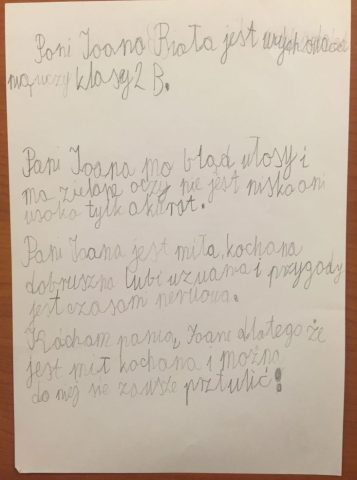 Pani Ioana Biała jest wychowawczi
nią, uczy klasy 2 B.
Pani Ioana mo błąd włosy i
ma zielone oczy nie jest niska ani
wsoka tylk akurat.
Pani Ioana jest miła, kochana
dobruszna lubi wzwania i przygody
jest czasam nerwowa.
Kocham panią Ioane dlatego że
jest mił kochana i można
do niej sie zawsze prztulić!